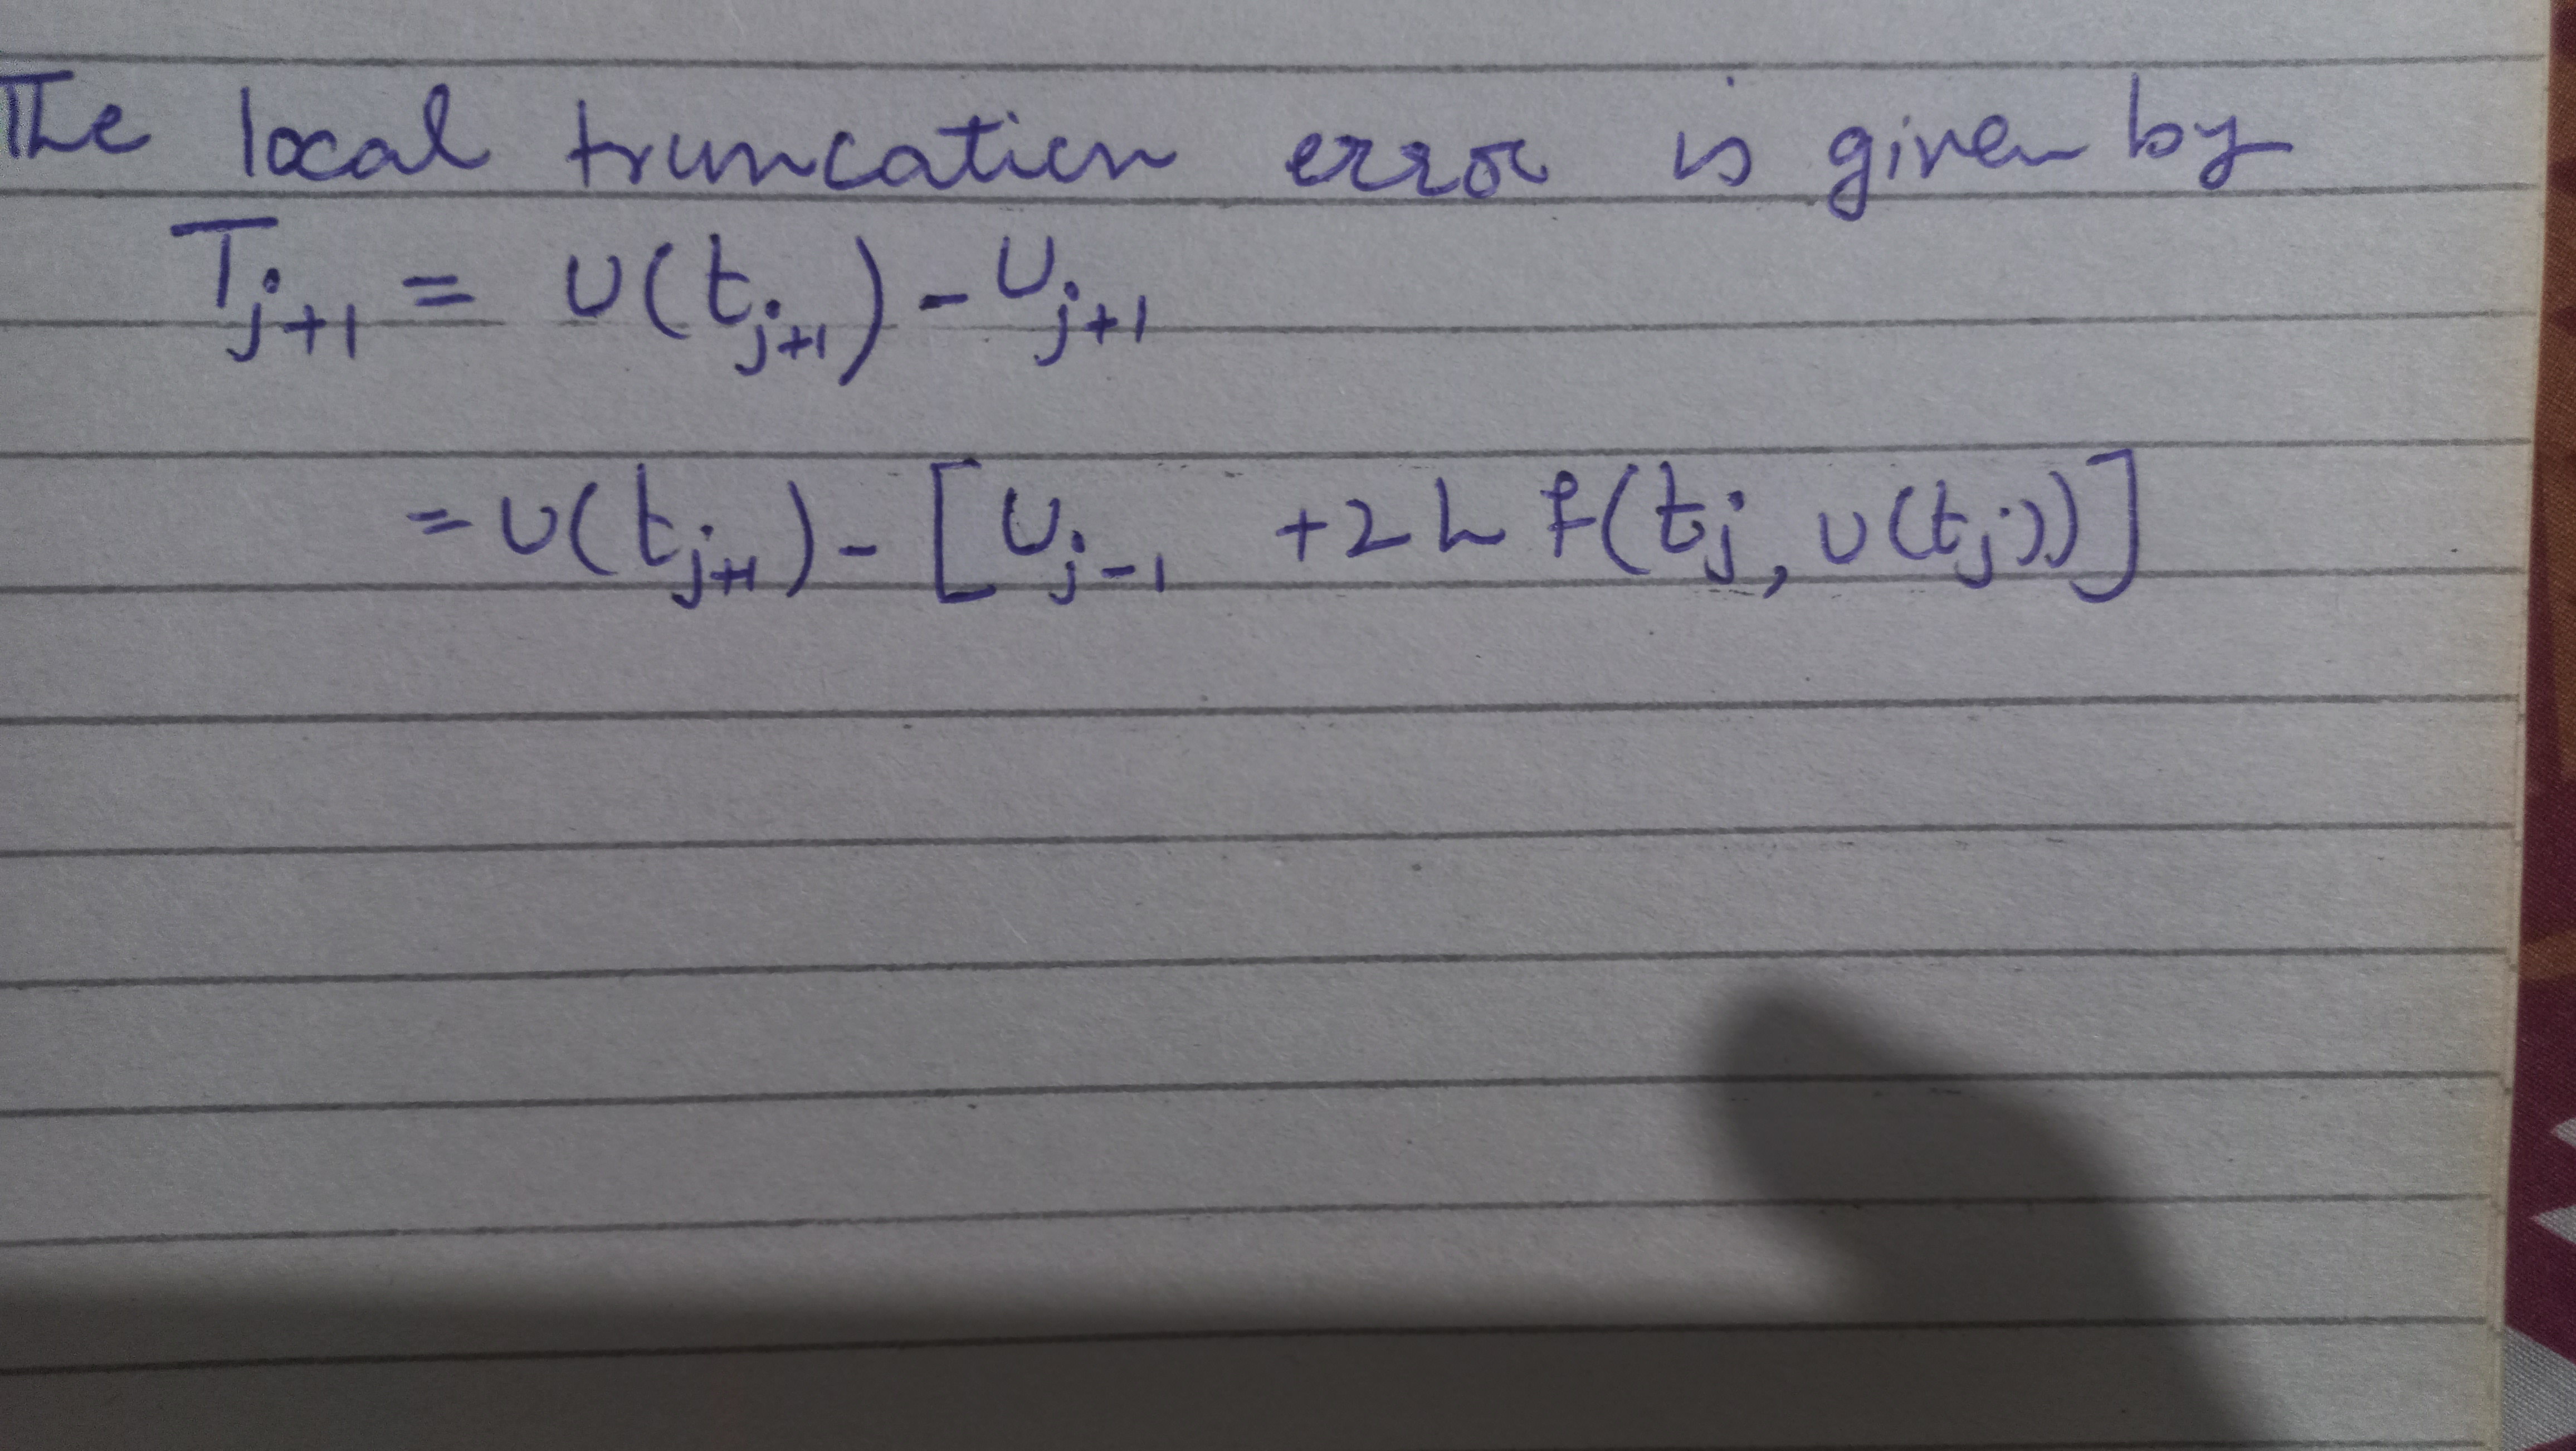 The local truncation error is given by
T_{j+1} = u(t_{j+1}) - u_{j+1}
= u(t_{j+1}) - [u_{j-1} + 2h f(t_j, u(t_j))]